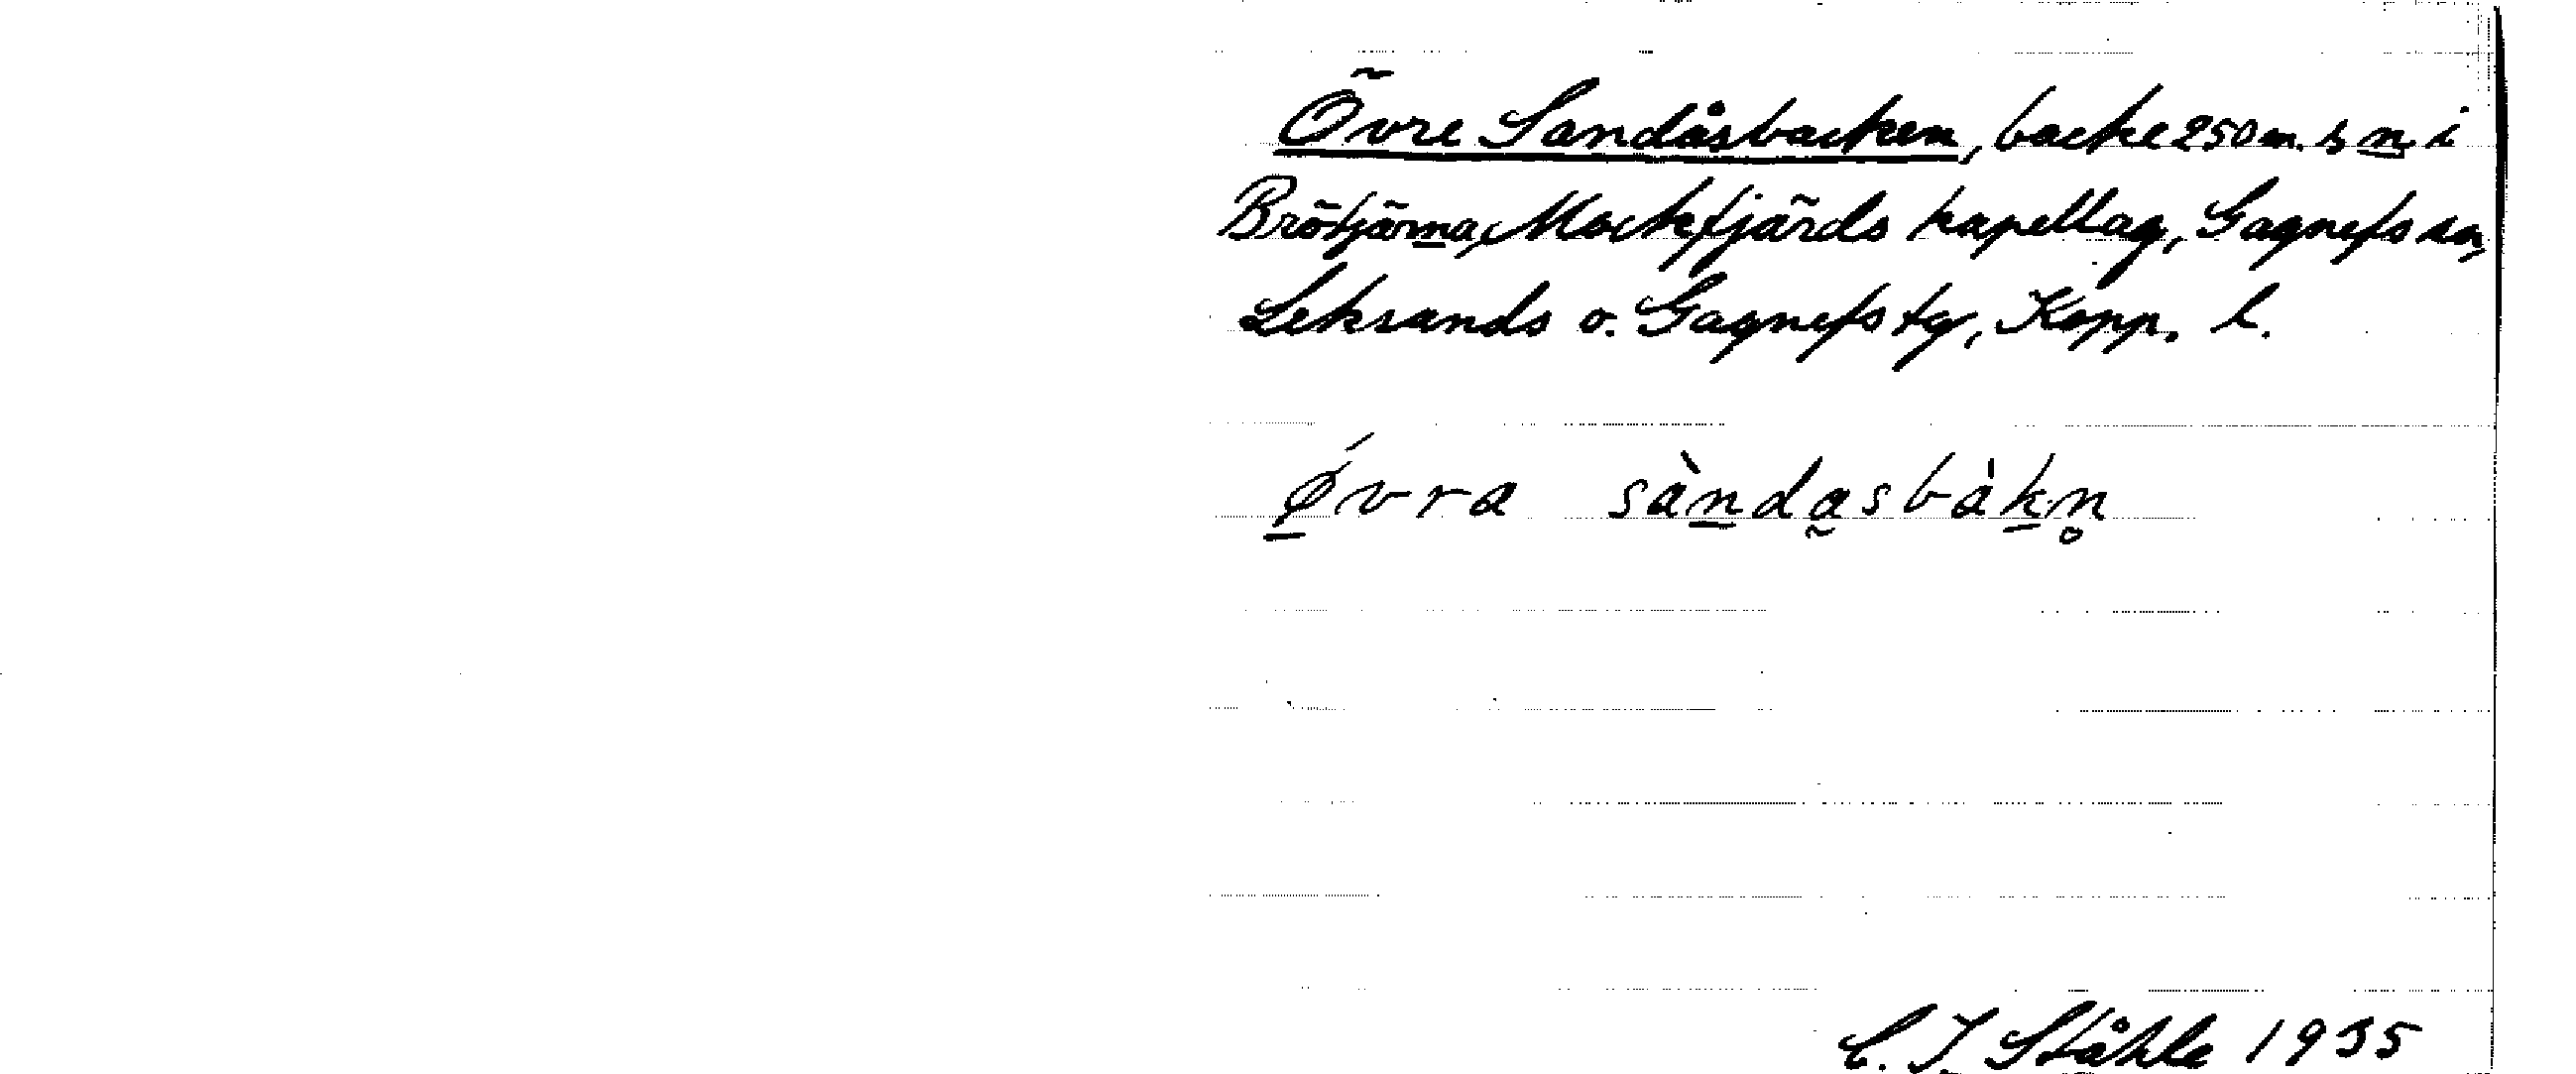 Övre Sandåsbacken, backe 250 m. s n. i
Brötjärna, Mockfjärds kapellag, Gagnefs sn,
Leksands o. Gagnefs tg, Kopp. l.
ǿvra sàndasbàkn̥
C. I. Ståhle 1935